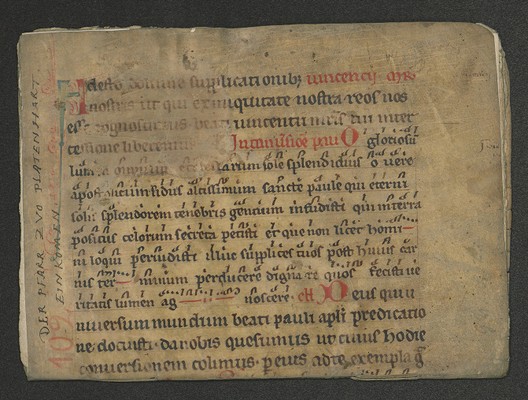 desto domine supplicationibꝫ uincencij mr̄is
nostris ut qui ex iniquitate nostra reos nos
esse cognoscimus beati uincentii mr̄is tui inter
cessione liberemur In conuersione pau O gloriosū
lum sole splendidius o uere
apostolicum sidus altissimum sancte paule qui eterni
solis splendorem tenebris gentium infudisti qui in terra
positus celorum secreta petisti et que non licet homi
ni loqui peruidisti illuc supplices tuos post huius car
nis ter minum perducere dignare quos fecisti ue
ritatis lumen ag noscere. Deus qui u
niuersum mundum beati pauli apl̄i predicatio
ne docuisti da nobis quesumus ut cuius hodie
conuersionem colimus per eius ad te exempla
DER PFARR ZVO PLATENHART
EINKOMEN
109